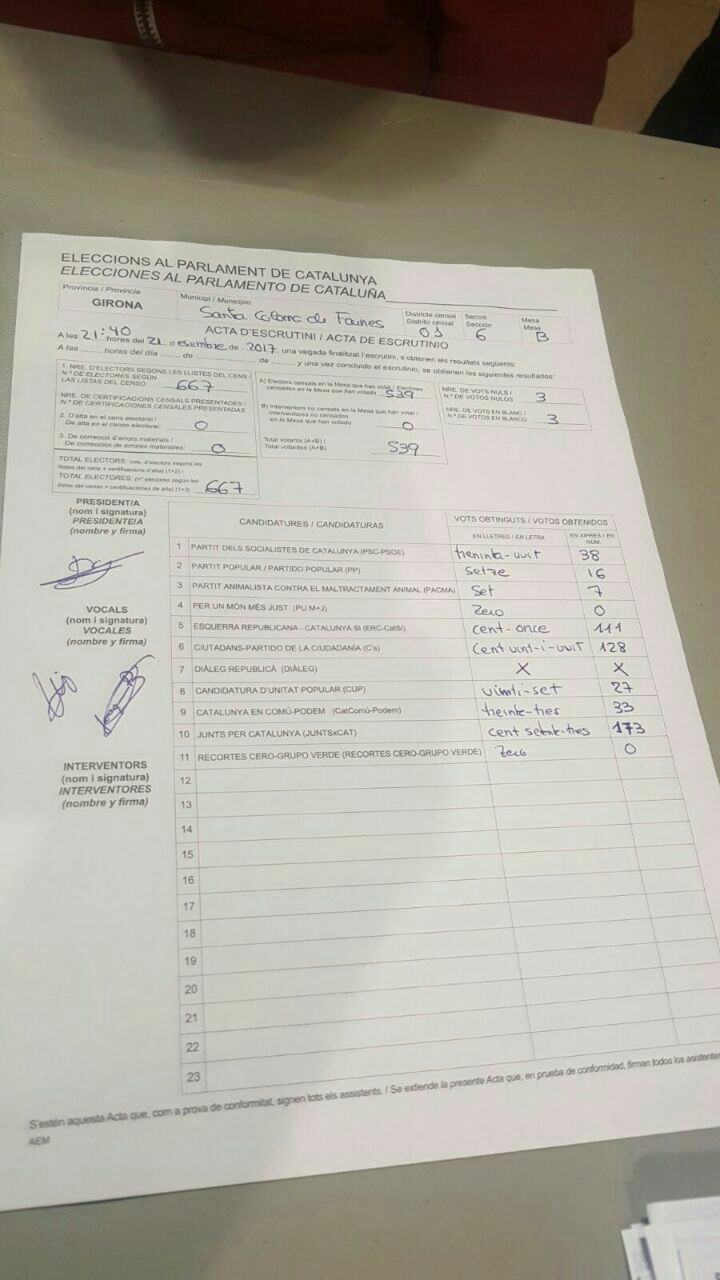 ELECCIONS AL PARLAMENT DE CATALUNYA
ELECCIONES AL PARLAMENTO DE CATALUÑA
Província / Provincia
GIRONA
Municipi / Municipio
Santa Coloma de Farnes
Districte censal
Distrito censal
01
Secció
Sección
6
Mesa
Mesa
B
ACTA D'ESCRUTINI / ACTA DE ESCRUTINIO
A les 21:40 hores del 21 d desembre de 2017 una vegada finalitzat l'escrutini, s'obtenen els resultats següents:
A las ........ horas del día ....... de ................ de ........ y una vez concluido el escrutinio, se obtienen los siguientes resultados:
1. NRE. D'ELECTORS SEGONS LES LLISTES DEL CENS /
N.º DE ELECTORES SEGÚN
LAS LISTAS DEL CENSO 667
NRE. DE CERTIFICACIONS CENSALS PRESENTADES /
N.º DE CERTIFICACIONES CENSALES PRESENTADAS
2. D'alta en el cens electoral /
De alta en el censo electoral: 0
3. De correcció d'errors materials /
De corrección de errores materiales: 0
TOTAL ELECTORS: (nre. d'electors segons les
llistes del cens + certificacions d'alta) (1+2) /
TOTAL ELECTORES: (nº electores según las
listas del censo + certificaciones de alta) (1+2) 667
A) Electors censats en la Mesa que han votat / Electores
censados en la Mesa que han votado 539
B) Interventors no censats en la Mesa que han votat /
Interventores no censados
en la Mesa que han votado 0
Total votants (A+B) /
Total votantes (A+B) 539
NRE. DE VOTS NULS /
N.º DE VOTOS NULOS 3
NRE. DE VOTS EN BLANC /
N.º DE VOTOS EN BLANCO 3
PRESIDENT/A
(nom i signatura)
PRESIDENTE/A
(nombre y firma)
VOCALS
(nom i signatura)
VOCALES
(nombre y firma)
INTERVENTORS
(nom i signatura)
INTERVENTORES
(nombre y firma)
CANDIDATURES / CANDIDATURAS
VOTS OBTINGUTS / VOTOS OBTENIDOS
EN LLETRES / EN LETRA
EN XIFRES / EN NÚM.
1 PARTIT DELS SOCIALISTES DE CATALUNYA (PSC-PSOE) treninta-vuit 38
2 PARTIT POPULAR / PARTIDO POPULAR (PP) Setze 16
3 PARTIT ANIMALISTA CONTRA EL MALTRACTAMENT ANIMAL (PACMA) Set 7
4 PER UN MÓN MÉS JUST (PU M+J) Zero 0
5 ESQUERRA REPUBLICANA - CATALUNYA SÍ (ERC-CatSí) cent-once 111
6 CIUTADANS-PARTIDO DE LA CIUDADANÍA (C's) Cent vint-i-vuit 128
7 DIÀLEG REPUBLICÀ (DIÀLEG) X X
8 CANDIDATURA D'UNITAT POPULAR (CUP) vinti-set 27
9 CATALUNYA EN COMÚ-PODEM (CatComú-Podem) treinte-tres 33
10 JUNTS PER CATALUNYA (JUNTSxCAT) cent setente-tres 173
11 RECORTES CERO-GRUPO VERDE (RECORTES CERO-GRUPO VERDE) Zero 0
12
13
14
15
16
17
18
19
20
21
22
23
S'estén aquesta Acta que, com a prova de conformitat, signen tots els assistents. / Se extiende la presente Acta que, en prueba de conformidad, firman todos los asistentes
AEM